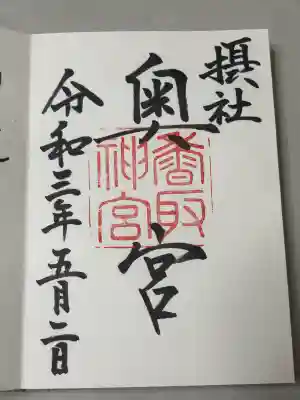 摂社
奥宮
香取神宮
令和三年五月二日